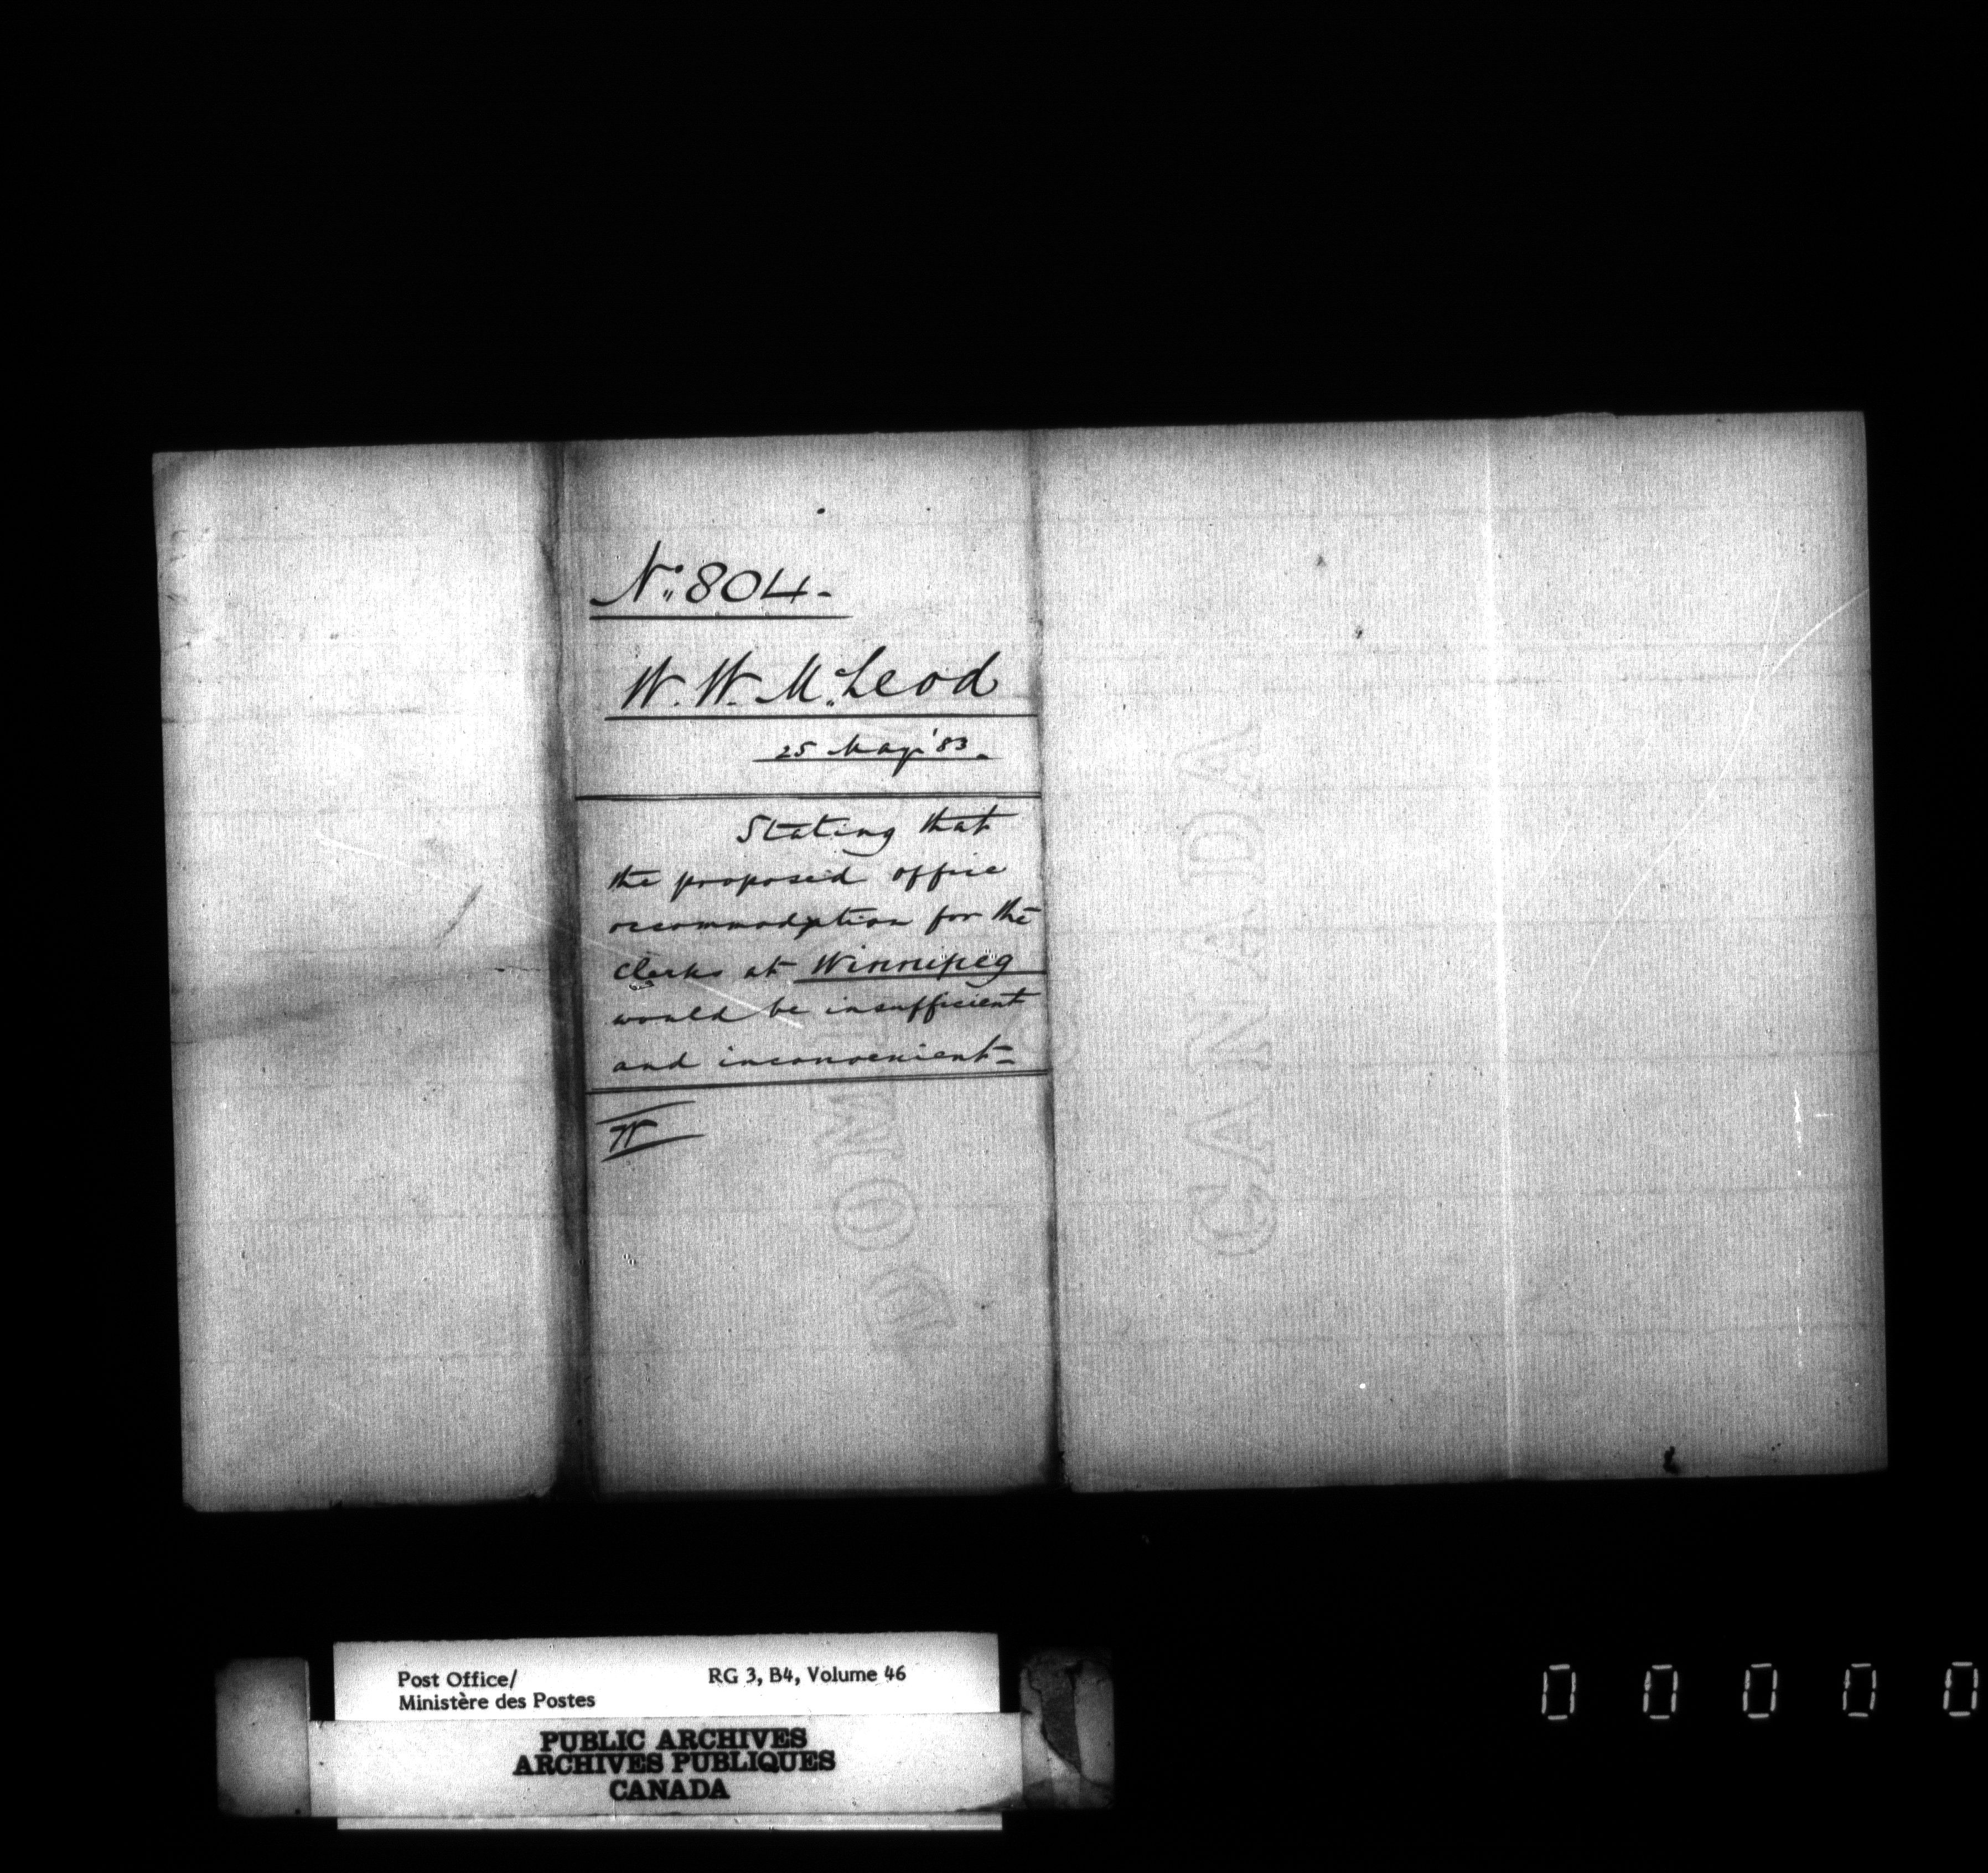 No. 804.
W. W. McLeod
25 May '83.
Stating that
the proposed office
accommodation for the
clerks at Winnipeg
would be insufficient
and inconvenient
W
CANADA
Post Office/
Ministère des Postes
RG 3, B4, Volume 46
PUBLIC ARCHIVES
ARCHIVES PUBLIQUES
CANADA
0 0 0 0 0